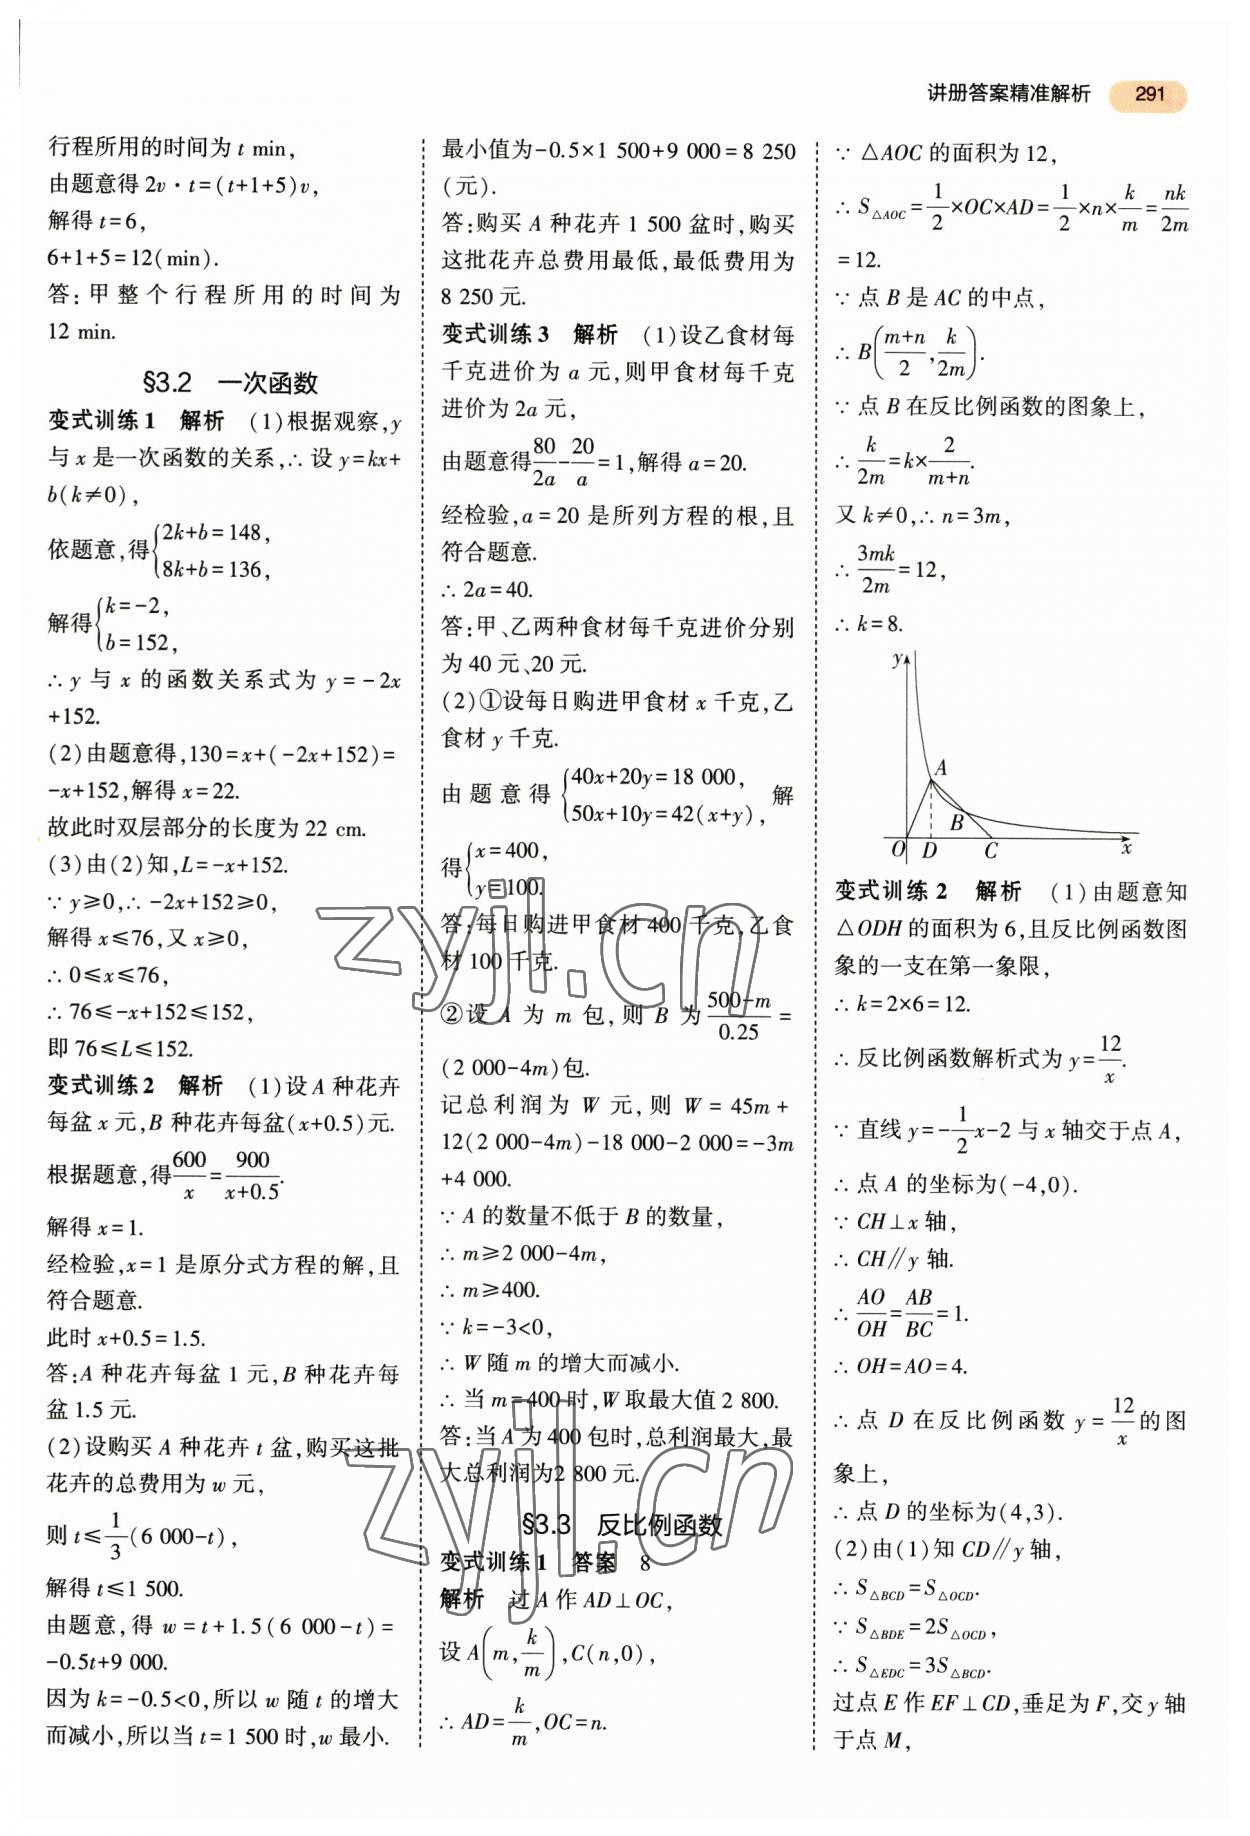 讲册答案精准解析 291
行程所用的时间为 t min,
由题意得 2v·t=(t+1+5)v,
解得 t=6,
6+1+5=12(min).
答:甲整个行程所用的时间为
12 min.
§3.2 一次函数
变式训练1 解析 (1)根据观察,y
与 x 是一次函数的关系,∴设 y=kx+
b(k≠0),
依题意,得{2k+b=148,
8k+b=136,
解得{k=-2,
b=152,
∴y 与 x 的函数关系式为 y=-2x
+152.
(2)由题意得,130=x+(-2x+152)=
-x+152,解得 x=22.
故此时双层部分的长度为 22 cm.
(3)由(2)知,L=-x+152.
∵y≥0,∴-2x+152≥0,
解得 x≤76,又 x≥0,
∴0≤x≤76,
∴76≤-x+152≤152,
即 76≤L≤152.
变式训练2 解析 (1)设 A 种花卉
每盆 x 元,B 种花卉每盆(x+0.5)元.
根据题意,得600/x=900/(x+0.5).
解得 x=1.
经检验,x=1 是原分式方程的解,且
符合题意.
此时 x+0.5=1.5.
答:A 种花卉每盆 1 元,B 种花卉每
盆 1.5 元.
(2)设购买 A 种花卉 t 盆,购买这批
花卉的总费用为 w 元,
则 t≤1/3(6 000-t),
解得 t≤1 500.
由题意,得 w=t+1.5(6 000-t)=
-0.5t+9 000.
因为 k=-0.5<0,所以 w 随 t 的增大
而减小,所以当 t=1 500 时,w 最小.
最小值为-0.5×1 500+9 000=8 250
(元).
答:购买 A 种花卉 1 500 盆时,购买
这批花卉总费用最低,最低费用为
8 250 元.
变式训练3 解析 (1)设乙食材每
千克进价为 a 元,则甲食材每千克
进价为 2a 元,
由题意得80/2a-20/a=1,解得 a=20.
经检验,a=20 是所列方程的根,且
符合题意.
∴2a=40.
答:甲、乙两种食材每千克进价分别
为 40 元、20 元.
(2)①设每日购进甲食材 x 千克,乙
食材 y 千克.
由题意得{40x+20y=18 000,
50x+10y=42(x+y), 解
得{x=400,
y=100.
答:每日购进甲食材 400 千克,乙食
材 100 千克.
②设 A 为 m 包,则 B 为(500-m)/0.25=
(2 000-4m)包.
记总利润为 W 元,则 W=45m+
12(2 000-4m)-18 000-2 000=-3m
+4 000.
∵A 的数量不低于 B 的数量,
∴m≥2 000-4m,
∴m≥400.
∵k=-3<0,
∴W 随 m 的增大而减小.
∴当 m=400 时,W 取最大值 2 800.
答:当 A 为 400 包时,总利润最大,最
大总利润为 2 800 元.
§3.3 反比例函数
变式训练1 答案 8
解析 过 A 作 AD⊥OC,
设 A(m,k/m),C(n,0),
∴AD=k/m,OC=n.
∵△AOC 的面积为 12,
∴S△AOC=1/2×OC×AD=1/2×n×k/m=nk/2m
=12.
∵点 B 是 AC 的中点,
∴B((m+n)/2,k/2m).
∵点 B 在反比例函数的图象上,
∴k/2m=k×2/(m+n).
又 k≠0,∴n=3m,
∴3mk/2m=12,
∴k=8.
y
A
B
O D C x
变式训练2 解析 (1)由题意知
△ODH 的面积为 6,且反比例函数图
象的一支在第一象限,
∴k=2×6=12.
∴反比例函数解析式为 y=12/x.
∵直线 y=-1/2x-2 与 x 轴交于点 A,
∴点 A 的坐标为(-4,0).
∵CH⊥x 轴,
∴CH∥y 轴.
∴AO/OH=AB/BC=1.
∴OH=AO=4.
∴点 D 在反比例函数 y=12/x的图
象上,
∴点 D 的坐标为(4,3).
(2)由(1)知 CD∥y 轴,
∴S△BCD=S△OCD.
∵S△BDE=2S△OCD,
∴S△EDC=3S△BCD.
过点 E 作 EF⊥CD,垂足为 F,交 y 轴
于点 M,
zyjl.cn
zyjl.cn